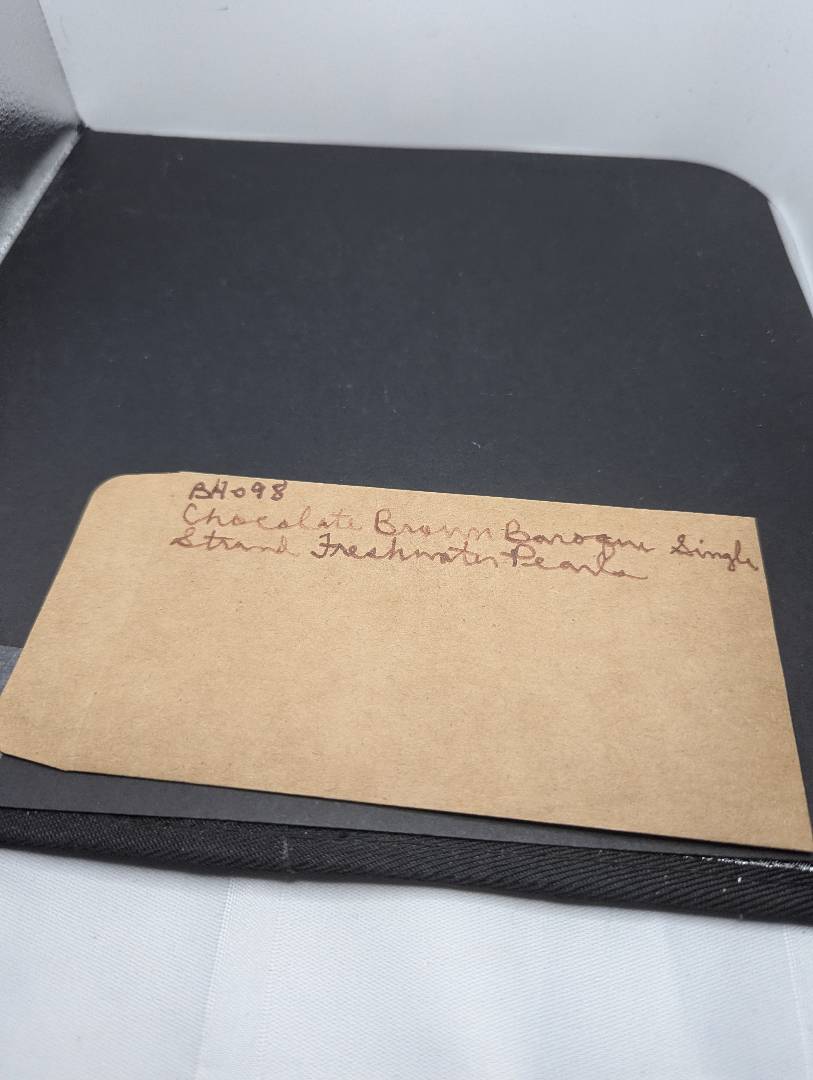 BH098
Chocolate Brown Baroque Single
Strand Freshwater Pearls